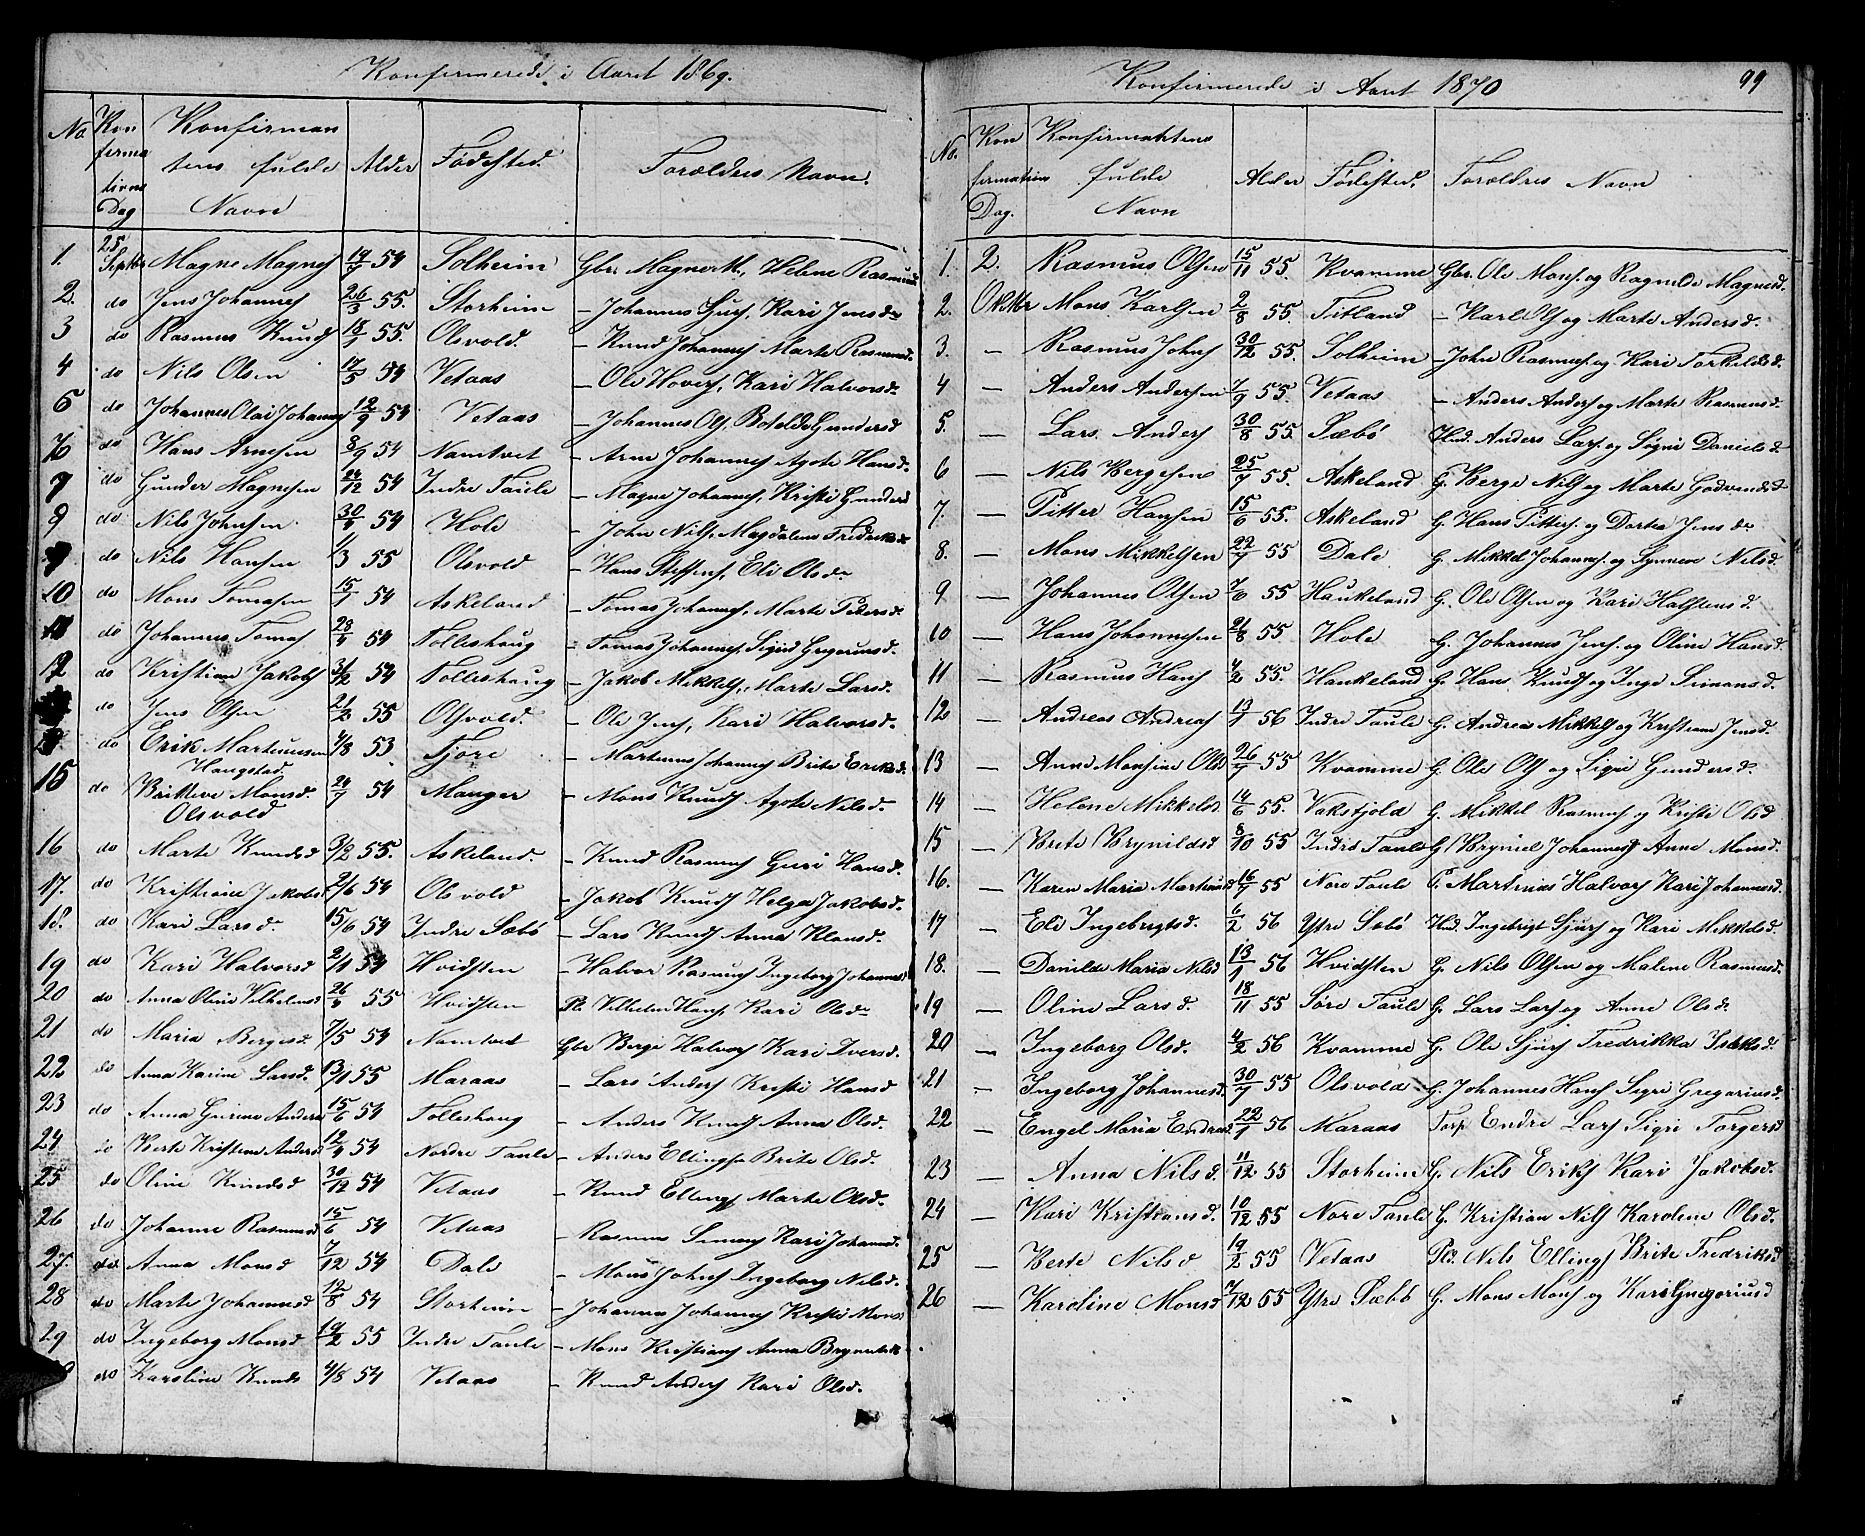 Konfirmerede i Aaret 1869.
No Konfirmationsdag Konfirmantens fulde Navn Alder Fødested. Forældres Navn.
1. 25 Septbr Magne Magnes 54 Solheim Gbr. Magne Helene
2. do Jens Johannes 26/3 55. Storheim – Johannes Kari Jensd.
3 do Rasmus Knuds 18/1 55. Olsvold. – Knud Johannes Marte Rasmusd.
4 do Nils Olsen 17/5 54 Vetaas – Ole Kari Halvorsd.
do Johannes Olai Johannes 12/9 54 Vetaas – Johannes Ols, Botilde Gundersd
6 do Hans Arnesen 8/9 54 Namtvet – Arne Johannes Agote Hansd.
do Gunder Magnesen 54 Indre Taule – Magne Johannes, Kristi Gundersd
do Nils Johnsen 54 Hole – John Nils, Magdalena
do Nils Hansen 1/3 55 Olsvold – Hans Steffens, Eli Olsd.
10 do Mons Tomasen 15/1 54 Askeland – Tomas Johannes, Marte
do Johannes Tomas 54 Tolleshaug – Tomas Johannes, Sigrid
12 do Kristian Jakobs 54 Tolleshaug – Jakob Mikkels, Marte Larsd.
do Jens Olsen 55 Olsvold. – Ole Jens, Kari Halvorsd.
do Erik Martinussen Haugstad 4/8 53 – Martinus Johannes Brite Eriksd.
15 do Britteve Monsd. Olsvold 54 Manger – Mons Knuds Agote Nilsd.
16 do Marte Knudsd 55. Askeland. – Knud Rasmus Guri Hansd.
17. do Kristine Jakobsd 54 Olsvold – Jakob Knuds Helga Jakobsd.
18. do Kari Larsd. 15/6 54 Indre Sæbø – Lars Knuds Anna Klausd.
19 do Kari Halvorsd 54 Hvidsten – Halvor Rasmus Ingeborg Johannesd
20 do Anna Oline Vilhelmsd 55 Hvidsten Vilhelm Hans, Kari Olsd.
21 do Maria Bergesd 7/5 54 Namtvet Gbr Berge Halvors Kari Iversd.
22 do Anna Karine Larsd. 13/1 55 Maraas – Lars Anders Kristi Hansd
23 do Anna Gurine Andersd 15/6 54 Tolleshaug – Anders Knuds Anna Olsd.
24 do Berte Kristine Andersd 54 Nordre Taule – Anders Ellings Brite Olsd.
25 do Oline Knudsd 30/12 54 Vetaas – Knud Ellings Marte Olsd.
26 do Johanne Rasmusd 15/6 54 Vetaas – Rasmus Simons Kari Johannesd.
27. do Anna Monsd 7/12 54 Dale – Mons Johns Ingeborg Nilsd.
28 do Marte Johannesd 12/8 54 Storheim – Johannes Johannes Kristi Monsd
29 do Ingeborg Monsd 55 Indre Taule – Mons Kristians Anna
do Karoline Knudsd 4/8 54 Vetaas – Knud Anders Kari Olsd.
Konfirmerede i Aaret 1870
99
No. Konfirmations Dag. Konfirmantens fulde Navn Alder Fødested. Forældres Navn
1. 2. Rasmus Olsen 15/11 55. Kvamme Gbr. Ole Mons. og Ragnilde Magnesd.
2. Oktbr Mons Karlsen 2/8 55. Titland – Karl Ols og Marte Andersd.
3. – Rasmus Johns 30/12 55. Solheim – John Rasmus. og Kari Torkildsd.
4 – Anders Andersen 7/9 55. Vetaas – Anders Anders og Marte Rasmusd.
5. – Lars Anders 30/8 55 Sæbø Hud. Anders Lars. og Søgni Danielsd.
6 – Nils Bergesen 55. Askeland G. Berge Nils og Marte
7. – Pitter Hansen 15/6 55. Askeland G. Hans Pitters. og Dortea Jensd.
8. – Mons Mikkelsen 55 Dale G. Mikkel Johannes. og Synneve Nilsd.
9 – Johannes Olsen 55 Haukeland G. Ole Olsen og Kari Halstensd.
10 – Hans Johannesen 21/8 55 Hole G. Johannes Jens. og Oline Hansd.
11 – Rasmus Hans 4/2 55. Haukeland G. Hans Knuds og Inge Simonsd.
12 – Andreas Andreas 13/1 56 Indre Taule G. Andreas Mikkels og Kristiane Jensd.
13 – Anne Monsine Olsd 55 Kvamme G. Ole Ols og Sigri Gundersd.
14 – Helene Mikkelsd 14/6 55. Vakstjold G. Mikkel Rasmus og Kristi Olsd
15 – Brite Brynildsd 8/10 55 Indre Taule G Bryniel Johannes Anne Monsd.
16. – Karen Maria Martinusd 55 Nore Taule P. Martinus Halvors Kari Johannesd.
17 – Eli Ingebrigtsd. 56 Ytre Sæbø Hud. Ingebrigt Sjurs og Kari Mikkelsd
18. – Danilde Maria Nilsd 13/1 56 Hvidsten G. Nils Olsen og Malene Rasmusd.
19 – Oline Larsd. 18/11 55 Søre Taule G. Lars Lars og Anne Olsd.
20 – Ingeborg Olsd. 4/2 56 Kvamme G. Ole Sjurs Fredrikka
21 – Ingeborg Johannesd. 55 Olsvold G. Johannes Hans Sigri Gregoriusd.
22 – Engel Maria Endresd. 22/1 56 Maraas Endre Lars Sigri Torgersd
23 – Anna Nilsd. 11/12 55 Storheim G. Nils Eriks Kari Jakobsd.
24 – Kari Kristiansd. 10/12 55 Nore Taule G. Kristian Nils Karoline Olsd.
25 – Berte Nilsd 19/2 55 Vetaas Pl. Nils Ellings Brite Fredriksd
26 – Karoline Monsd 7/12 55 Ytre Sæbø G. Mons Mons og Kari Gregoriusd